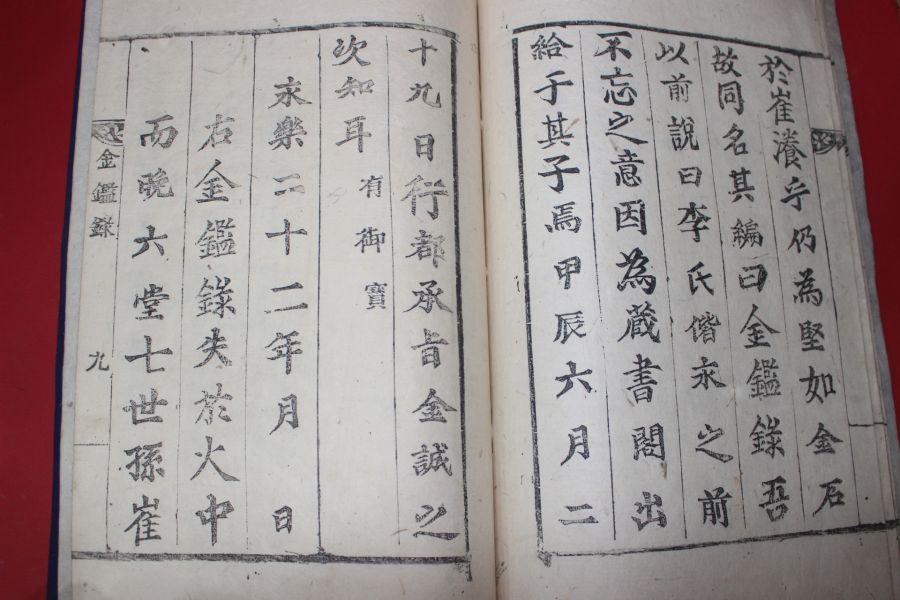 於崔瀁乎仍為堅如金石
故同名其編曰金鑑錄吾
以前說曰李氏偕永之前
不忘之意因為蔵書閣出
給于其子焉甲辰六月二
十九日行都承旨金誠之
次知耳 有御寶
永樂二十二年月 日
右金鑑錄失於火中
而晩六堂七世孫崔
金鑑錄 九